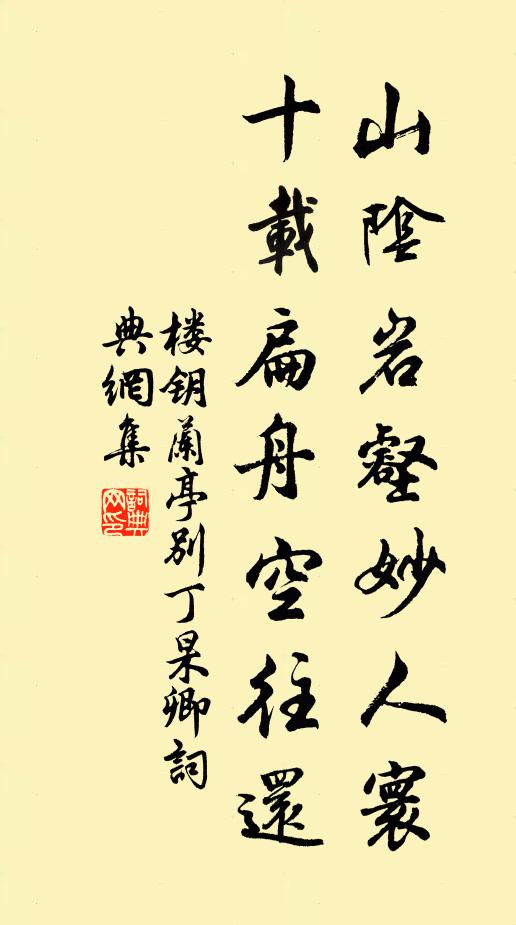 山陰岩壑妙人寰
十載扁舟空往還
楼钥蘭亭别丁杲卿詞
典網集
詞典网印